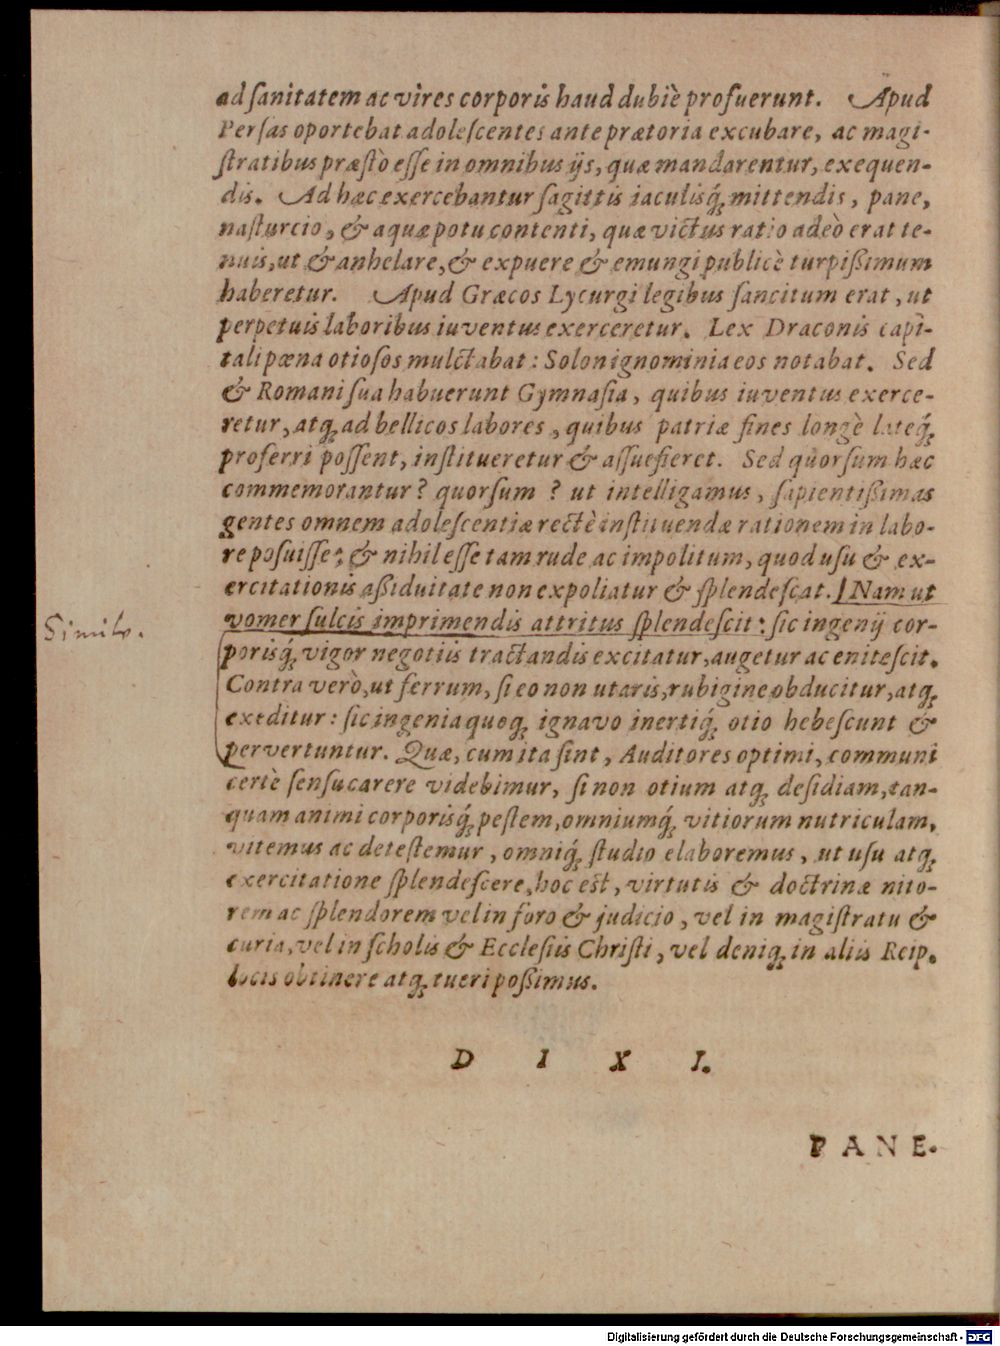 ad ſanitatem ac vires corporis haud dubiè profuerunt. Apud
Perſas oportebat adoleſcentes ante prætoria excubare, ac magi-
ſtratibus præſtò eſſe in omnibus ijs, quæ mandarentur, exequen-
dis. Ad hæc exercebantur ſagittis iaculisq́ꝫ mittendis, pane,
naſturcio, & aquæ potu contenti, quæ victus ratio adeò erat te-
nuis, ut & anhelare, & expuere & emungi publicè turpißimum
haberetur. Apud Græcos Lycurgi legibus ſancitum erat, ut
perpetuis laboribus iuventus exerceretur. Lex Draconis capi-
tali pœna otioſos mulctabat: Solon ignominia eos notabat. Sed
& Romani ſua habuerunt Gymnaſia, quibus iuventus exerce-
retur, atqꝫ ad bellicos labores, quibus patriæ fines longè lateq́ꝫ
proferri poſſent, inſtitueretur & aſſuefieret. Sed quorſum hæc
commemorantur? quorſum? ut intelligamus, ſapientißimas
gentes omnem adoleſcentiæ rectè inſtituendæ rationem in labo-
re poſuiſſe: & nihil eſſe tam rude ac impolitum, quod uſu & ex-
ercitationis aßiduitate non expoliatur & ſplendeſcat. Nam ut
Simile. vomer ſulcis imprimendis attritus ſplendeſcit: ſic ingenij cor-
porisq́ꝫ vigor negotiis tractandis excitatur, augetur ac eniteſcit.
Contra verò, ut ferrum, ſi eo non utaris, rubigine obducitur, atqꝫ
exeditur: ſic ingenia quoqꝫ ignavo inertiq́ꝫ otio hebeſcunt &
pervertuntur. Quæ, cum ita ſint, Auditores optimi, communi
certè ſenſu carere videbimur, ſi non otium atqꝫ deſidiam, tan-
quam animi corporisq́ꝫ peſtem, omniumq́ꝫ vitiorum nutriculam,
vitemus ac deteſtemur, omniq́ꝫ ſtudio elaboremus, ut uſu atqꝫ
exercitatione ſplendeſcere, hoc eſt, virtutis & doctrinæ nito-
rem ac ſplendorem vel in foro & judicio, vel in magiſtratu &
curia, vel in ſcholis & Eccleſiis Chriſti, vel deniqꝫ in aliis Reip.
locis obtinere atqꝫ tueri poßimus.
D I X I.
PANE.
Digitalisierung gefördert durch die Deutsche Forschungsgemeinschaft - DFG